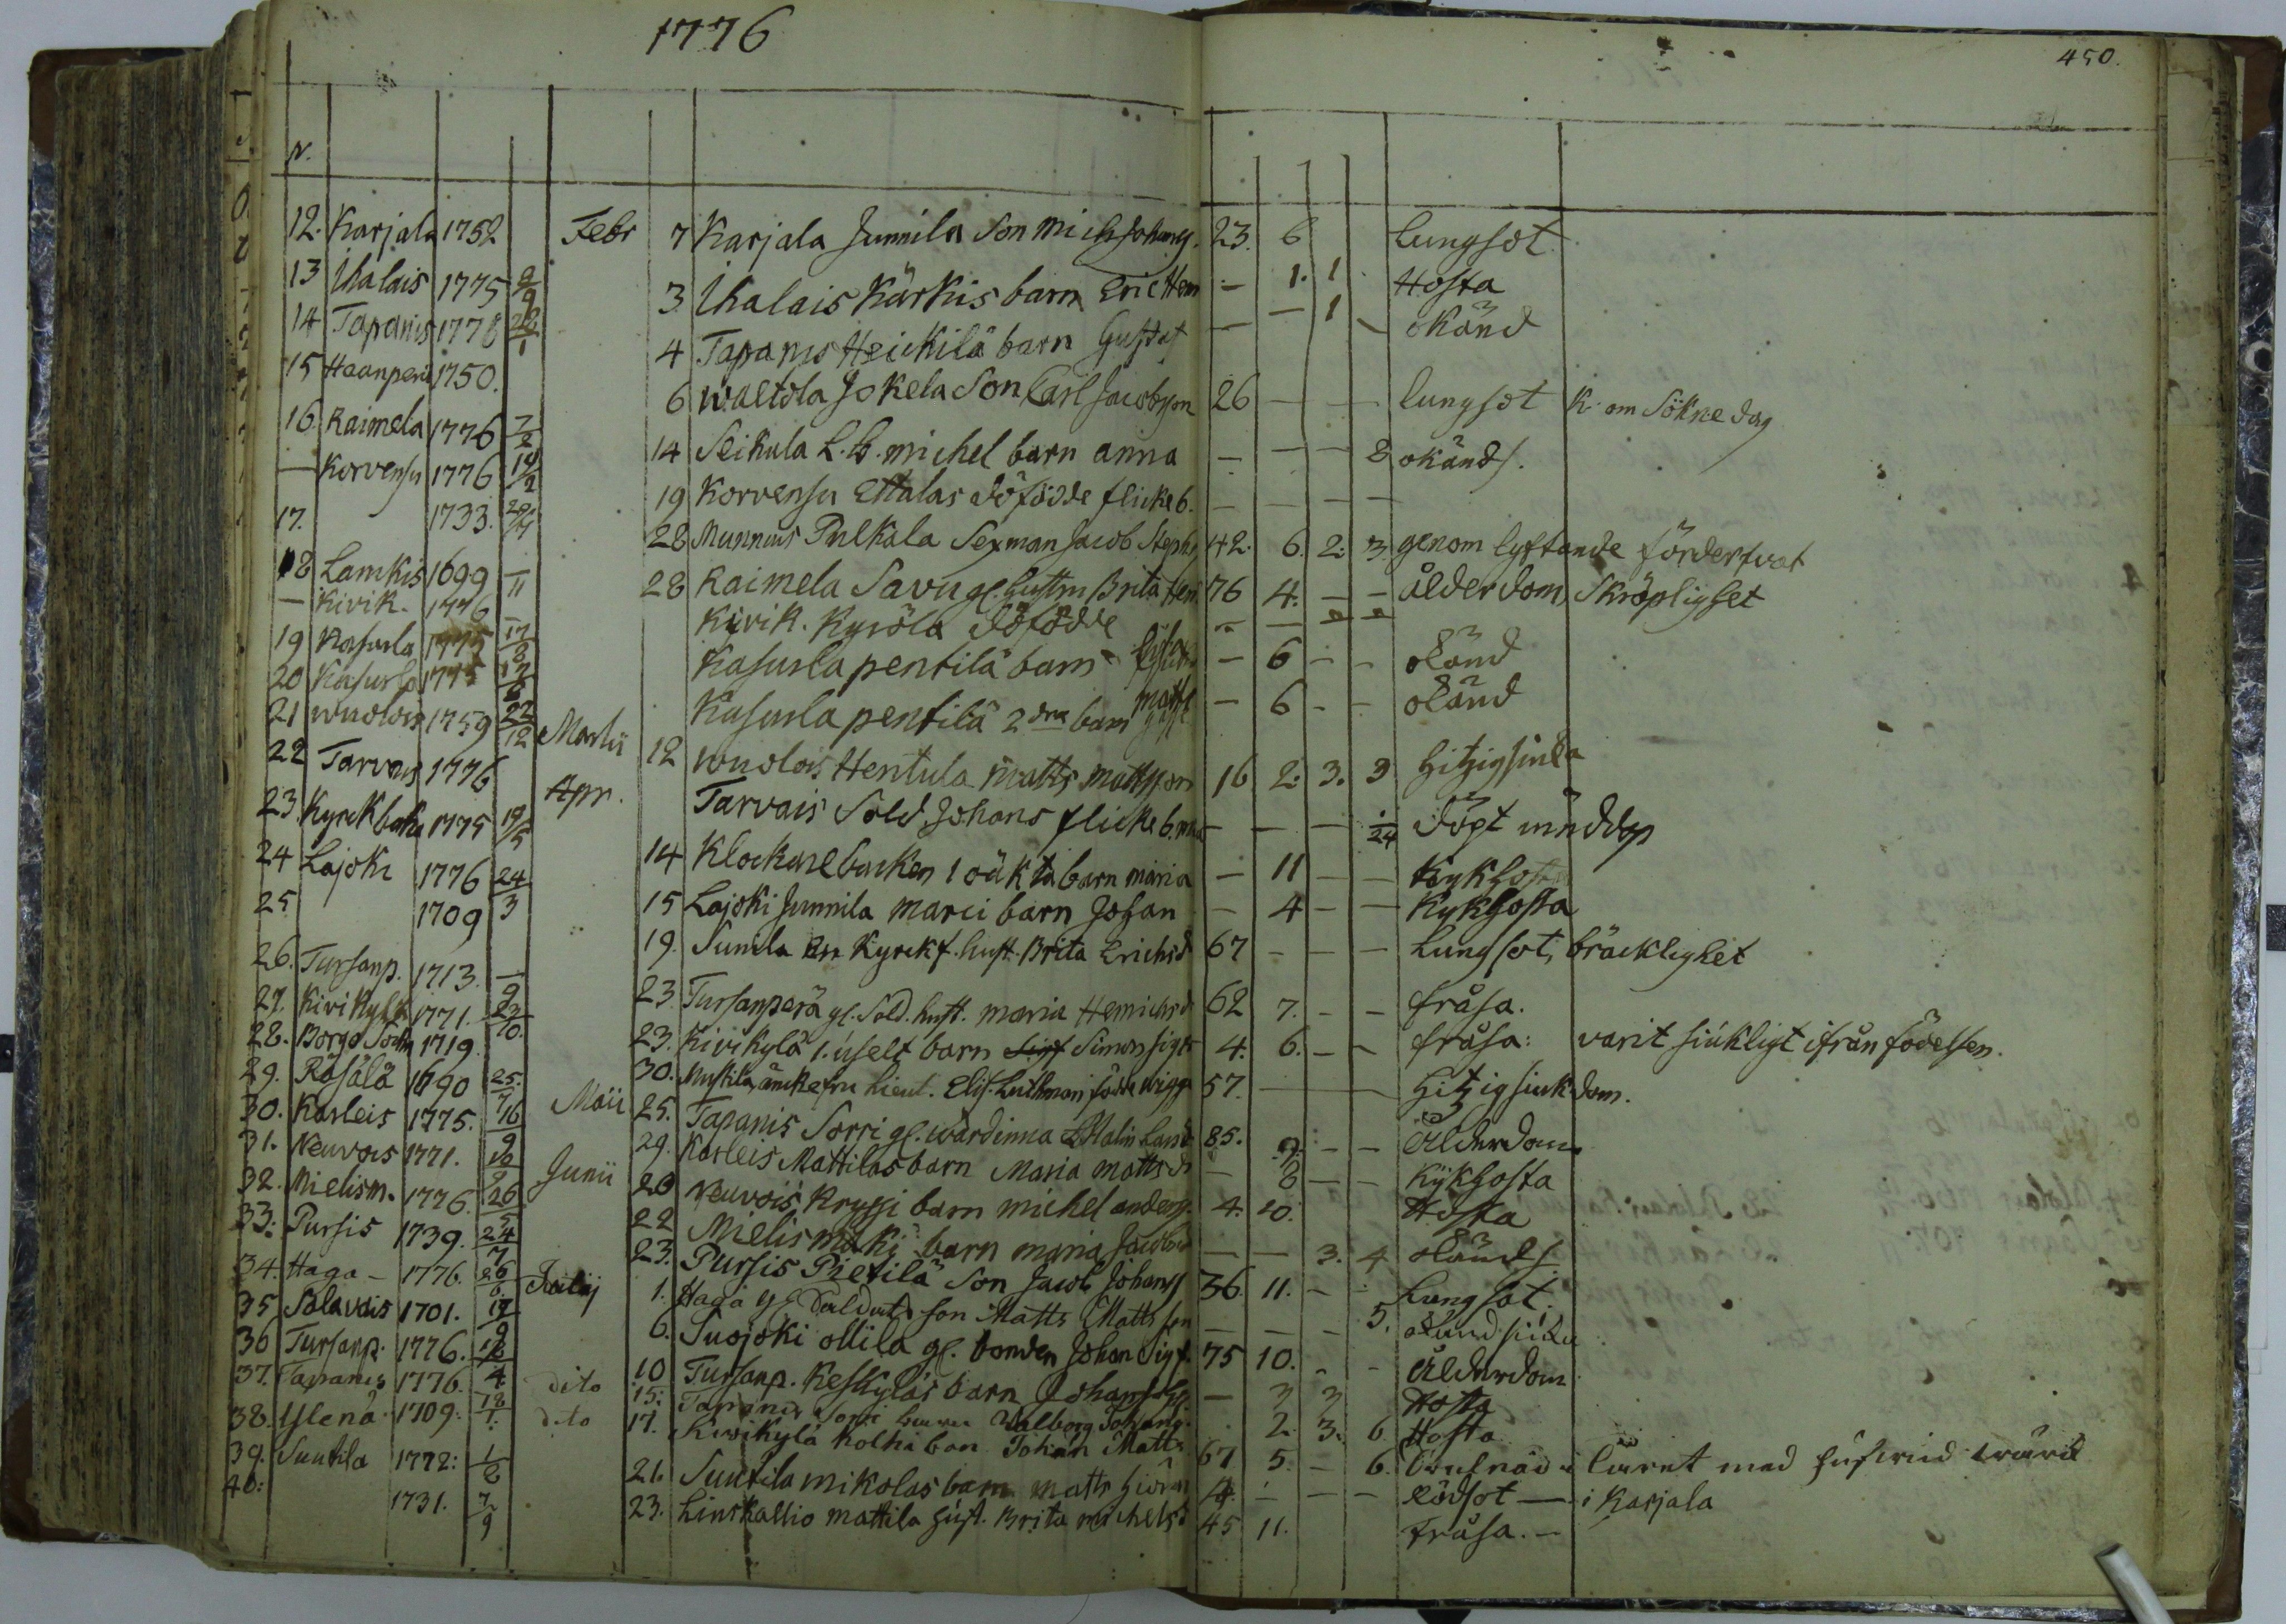 1776
450.
N.
12. Karjala 1752 Febr 7 Karjala Junnila Son Mich Johans. 23. 6 lungsot
13 Ihalais 1775 2/9 3 Ihalais Kärkis barn Eric Hem - 1. 1 Hosta
14 Tapanis 1778 28/1 4 Tapanis Heickilä barn Gustaf - - 1 - okänd
15 Haanperä 1750. 6 Waltola Jokela Son Carl Jacobsson 26 - - lungsot K. om Sökne dag
16 Raimela 1776 7/2 14 Seikula L.B. michel barn anna - - - 8 okänds.
- Korvensu 1776 19/2 19 Korvensu Ettalas döfödde flicke b. - - - -
17. 1733. 28 Munnus Pulkala Sexman Jacob Steph 42. 6. 2. 3 genom lyftande förderfvat
18 Lamkis 1699 11 28 Raimela Savu gl. hustru Brita Hen 76 4. - - ålderdom, Skröplighet
- Kivik. 1776 - Kivik. Kyrölä döfödde - - - -
19 Kasurla 1775 17/8 Kasurla pentilä barn - 6 - - okänd
20 Kasurla 1775 17/8 Kasurla pentilä 2dra barn matts - 6 - - okänd
21 Wuolois 1759 22/12 Martii 12 Wuolois Hentula Matts Mattsson 16 2. 3. 9 hitzig siuka
22 Tarvais 1776 Apr. Tarvais Sold. Johans flicke b. - - - 1/24 döpt nöddop
23. Kyrckbaka 1775 19/5 14 Klockarebacken 1 oäkta barn maria - 11 - - Kykhosta
24 Lajoki 1776 24/3 15 Lajoki Junnila Marci barn Johan - 4 - - Kykhosta
25 1709 19. Sunila Kyrckf. hust. Brita Erichsd 67 - - - Lungsot, bräcklighet
26. Tursanp. 1713. 9 23. Tursanperä gl. Sold. hust. maria Henrichsd 62 7. - - fråsa.
27. Kivikylä 1771. 23/10. 23. Kivikylä 1. uselt barn Simon Sigfr 4. 6. - - fråsa: varit siukligt ifrån födelsen.
28. Borgo Sochn 1719. 30. änckefru Lieut. Elis. Luthman födde 57. - - - Hitzig siukdom.
29. Räsälä 1690 25/7 Maii 25. Tapanis Sorri gl. wärdinna Malin 85. 9. - - Ålderdom
30. Karleis 1775. 16/9 29. Karleis Mattilas barn Maria mattsd - 8 - - Kykhosta
31. Neuvois 1771. Junii 20 Neuvois Kryssi barn michel anders. 4. 10. Hosta
32. Mielism. 1776. 26/5 22 Mielismäki barn maria Jacobsd - - 3. 4 okänds
33. Pursis 1739. 24/7 23. Pursis Pietilä Son Jacob Johans 36. 11. - - Lungsot.
34. Haga - 1776. 26/6 Julij 1. Haga gl. Saldats son Matts Mattsson - - - 5. okänd siuka
35 Salavais 1701. 6. Suojoki ollila gl. bonden Johan Sigf. 75 10. - - Ålderdom
36 Tursanp. 1776. dito 10 Tursanp. Keskyläs barn Johan - 3 3 Hosta
37. Tapanis 1776. 4 dito 15. Tapanis Sorri barn Walborg Johans. 2. 3. 6 Hosta
38. Ylenä 1709. 18/1. 17. Kivikylä Kolka bon. Johan Matts 67 5. - 6.
39. Suutila 1772: 1/8 21. Suutila mikolas barn matts 4. - - - rödsot - i Karjala
40: 1731. 7/9 23. Linskallio mattila hust. Brita michelsd 45 11. fråsa. -